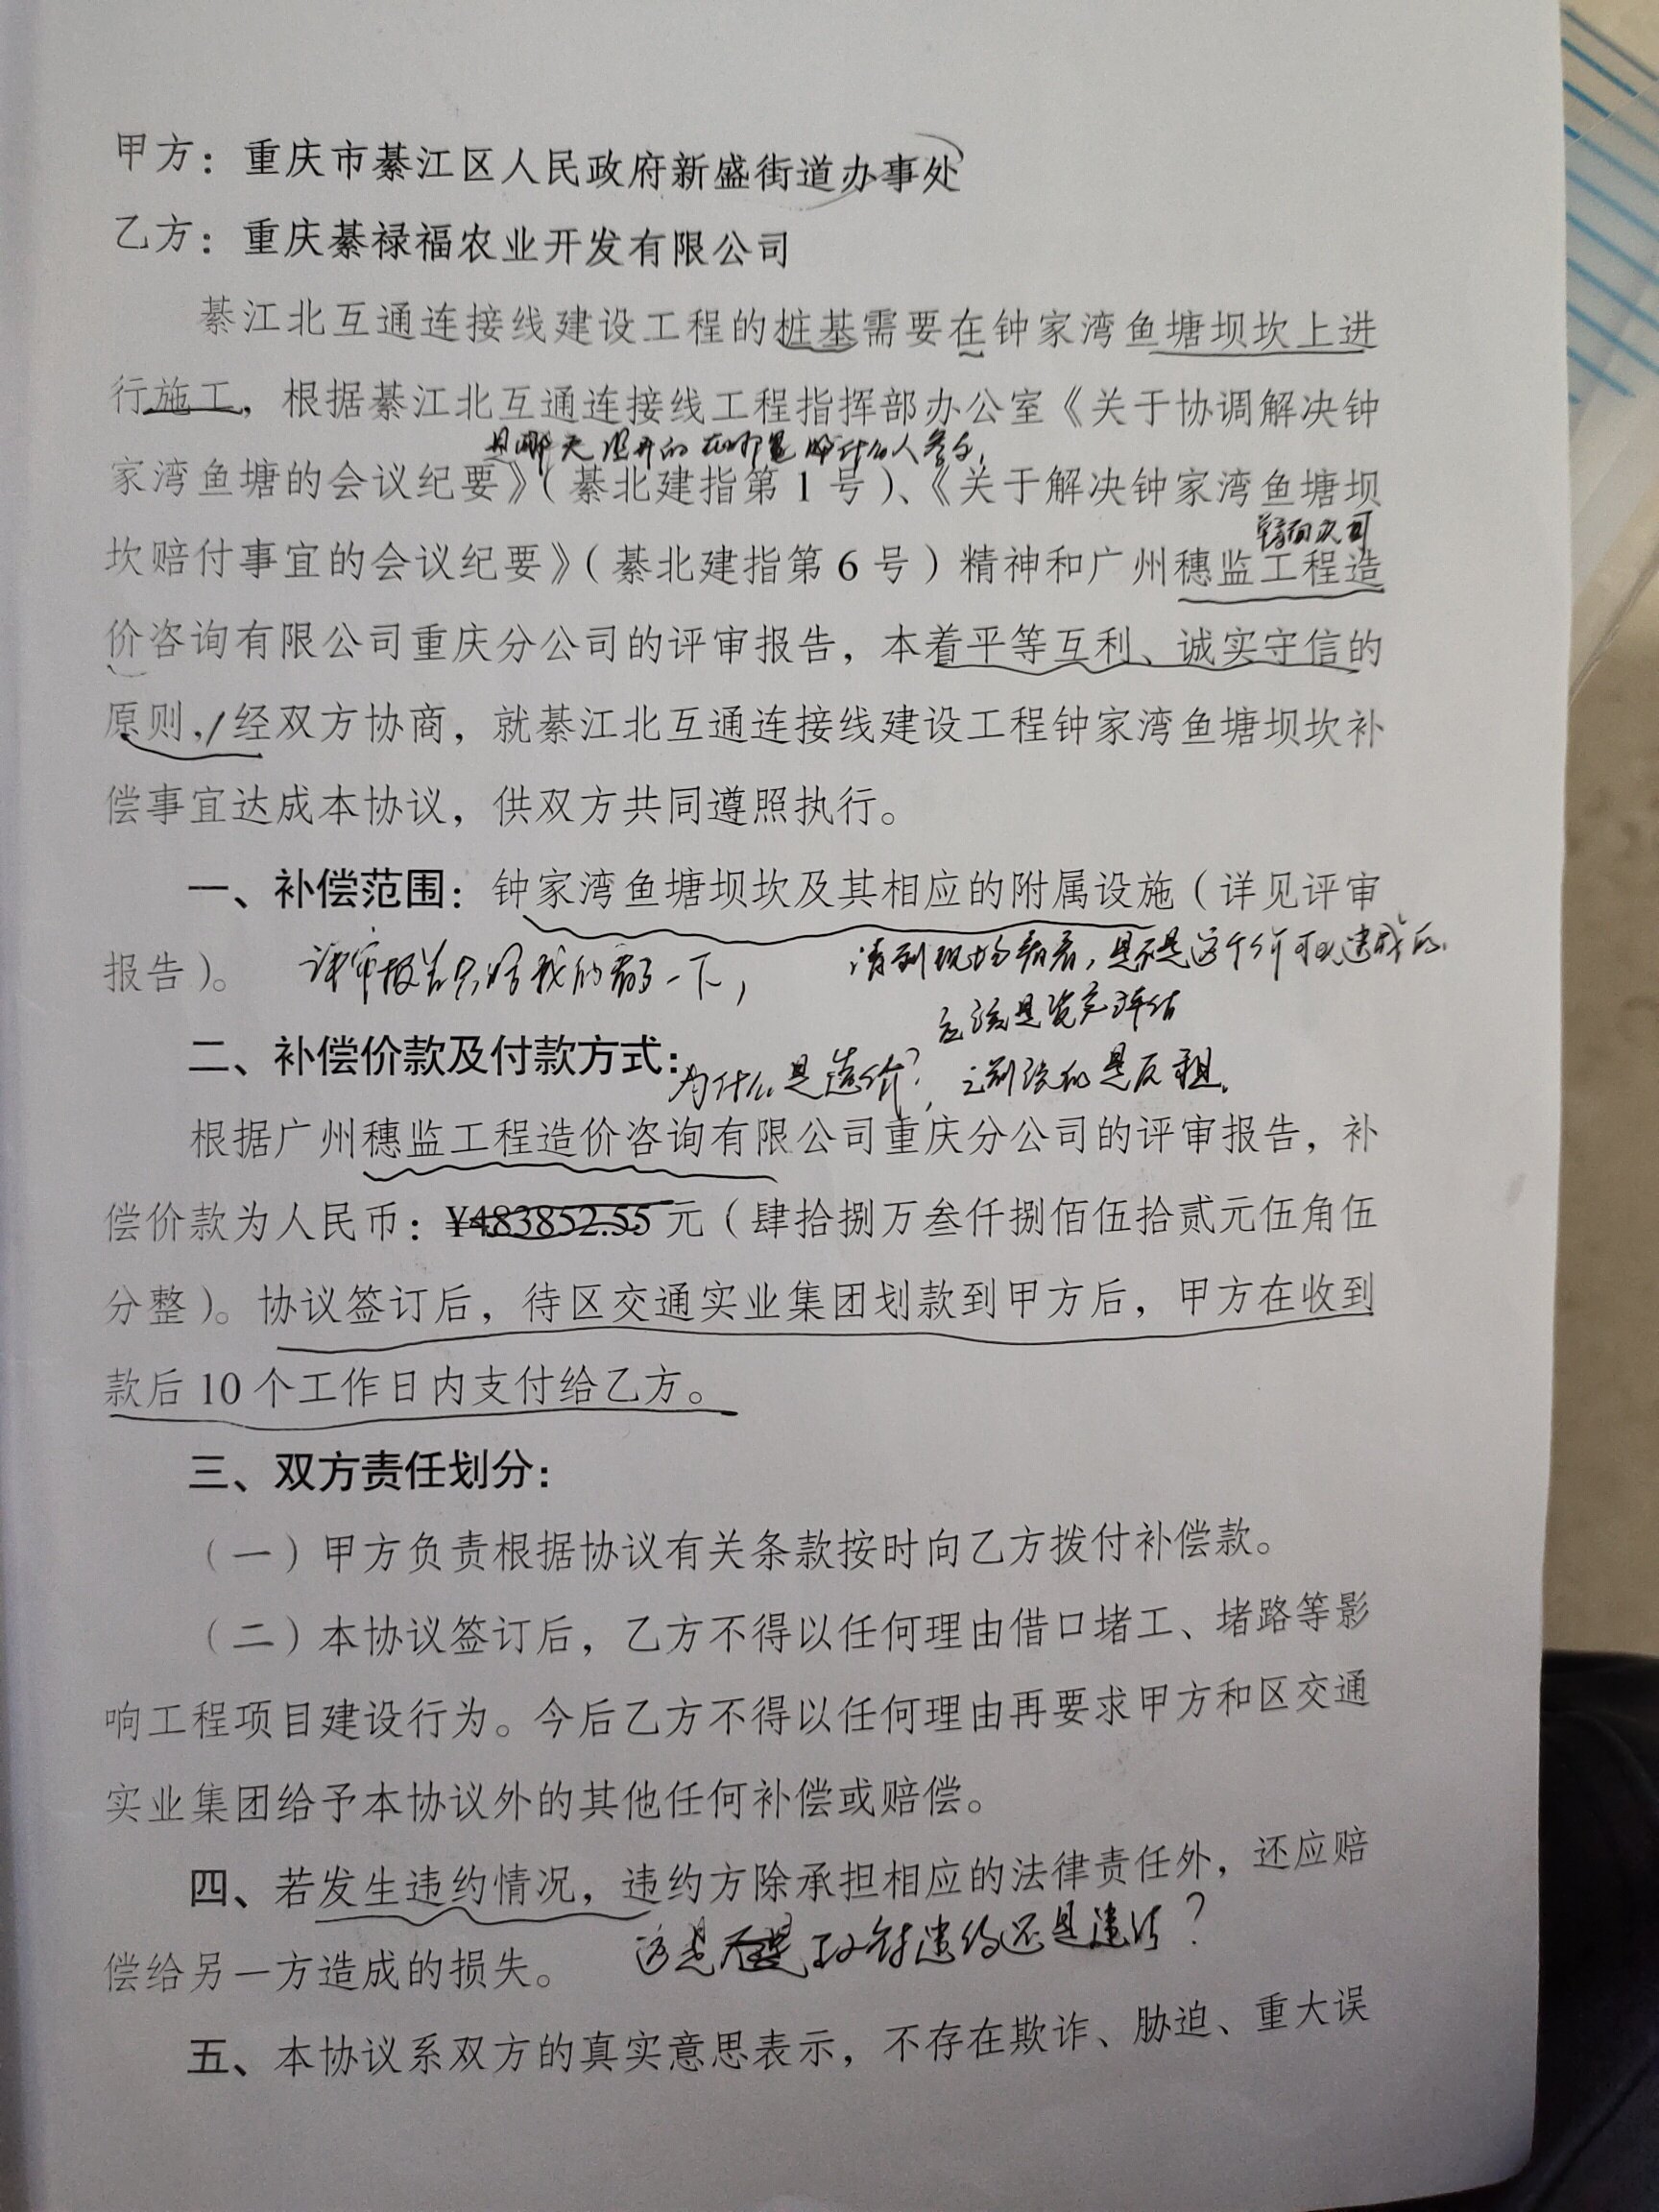 甲方：重庆市綦江区人民政府新盛街道办事处
乙方：重庆綦禄福农业开发有限公司
綦江北互通连接线建设工程的桩基需要在钟家湾鱼塘坝坎上进
行施工，根据綦江北互通连接线工程指挥部办公室《关于协调解决钟
是哪天召开的在哪里
家湾鱼塘的会议纪要》（綦北建指第1号）、《关于解决钟家湾鱼塘坝
坎赔付事宜的会议纪要》（綦北建指第6号）精神和广州穗监工程造
价咨询有限公司重庆分公司的评审报告，本着平等互利、诚实守信的
原则，经双方协商，就綦江北互通连接线建设工程钟家湾鱼塘坝坎补
偿事宜达成本协议，供双方共同遵照执行。
一、补偿范围：钟家湾鱼塘坝坎及其相应的附属设施（详见评审
报告）。 评审报告只给我们看了一下， 请到现场看看，是不是这个价可以建成的.
应该是资产评估
二、补偿价款及付款方式：为什么是造价？之前说的是反租.
根据广州穗监工程造价咨询有限公司重庆分公司的评审报告，补
偿价款为人民币：¥483852.55元（肆拾捌万叁仟捌佰伍拾贰元伍角伍
分整）。协议签订后，待区交通实业集团划款到甲方后，甲方在收到
款后10个工作日内支付给乙方。
三、双方责任划分：
（一）甲方负责根据协议有关条款按时向乙方拨付补偿款。
（二）本协议签订后，乙方不得以任何理由借口堵工、堵路等影
响工程项目建设行为。今后乙方不得以任何理由再要求甲方和区交通
实业集团给予本协议外的其他任何补偿或赔偿。
四、若发生违约情况，违约方除承担相应的法律责任外，还应赔
偿给另一方造成的损失。 这是不是政府违约还是违法？
五、本协议系双方的真实意思表示，不存在欺诈、胁迫、重大误